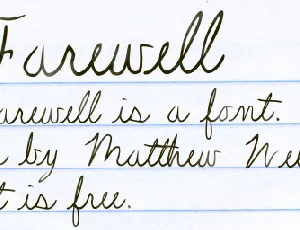 Farewell
arewell is a font.
by Matthew Wel
t is free.